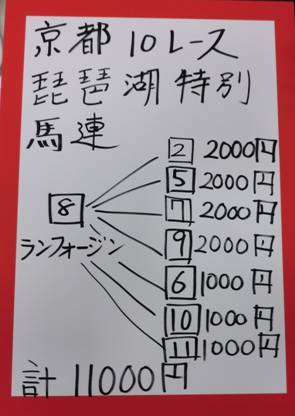 京都10レース
琵琶湖特別
馬連
2 2000円
5 2000円
7 2000円
8
9 2000円
ランフォージン
6 1000円
10 1000円
11 1000円
計 11000円